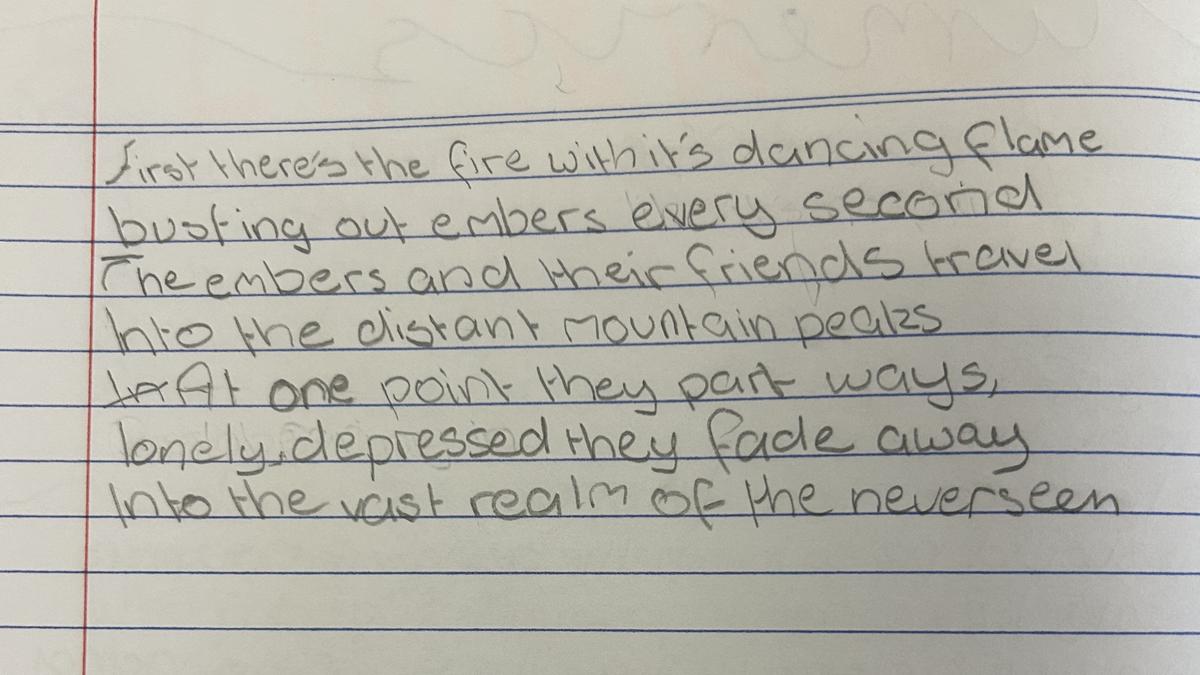 first there's the fire with it's dancing flame
busting out embers every second
The embers and their friends travel
Into the distant mountain peaks
At one point they part ways,
lonely, depressed they fade away
Into the vast realm of the neverseen